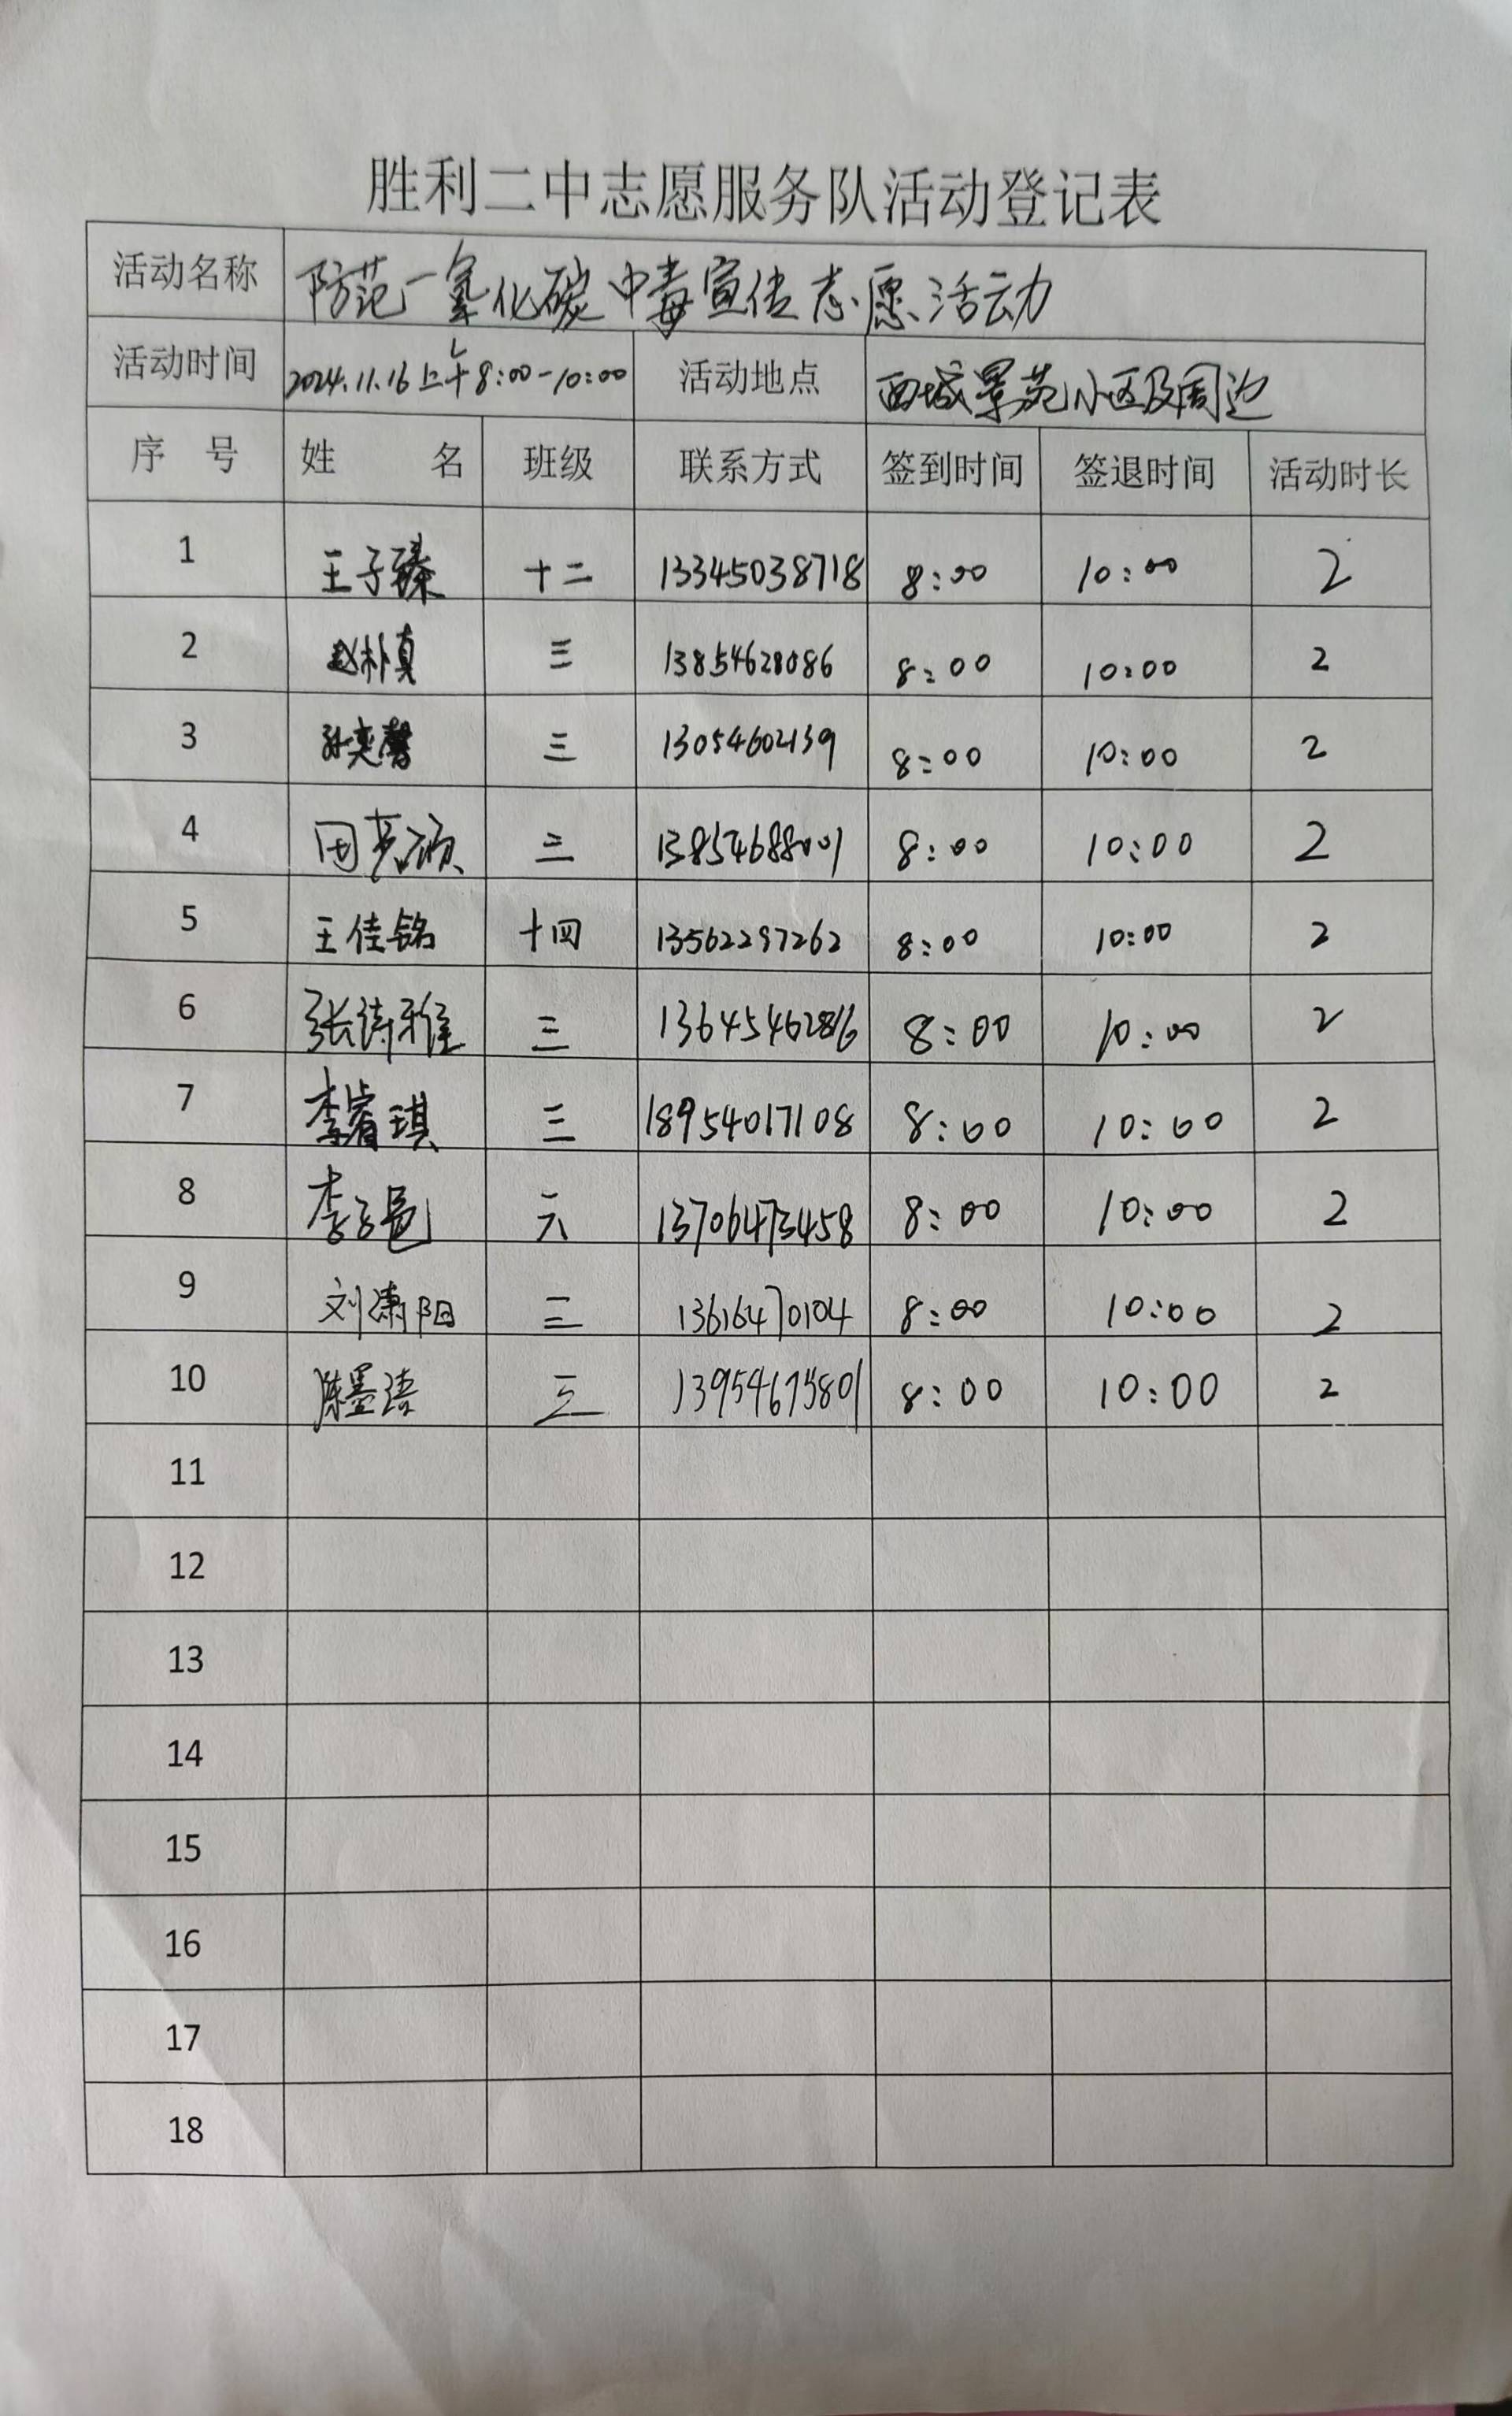 胜利二中志愿服务队活动登记表
活动名称 防范一氧化碳中毒宣传志愿活动
活动时间 2024.11.16上午8:00-10:00 活动地点 西城景苑小区及周边
序号 姓名 班级 联系方式 签到时间 签退时间 活动时长
1 王子臻 十二 13345038718 8:00 10:00 2
2 赵朴真 三 13854628086 8:00 10:00 2
3 孙奕馨 三 13054602139 8:00 10:00 2
4 三 13854688001 8:00 10:00 2
5 王佳铭 十四 13562297262 8:00 10:00 2
6 张诗雅 三 8:00 10:00 2
7 李睿琪 三 18954017108 8:00 10:00 2
8 六 13706473458 8:00 10:00 2
9 刘潇阳 三 13616470104 8:00 10:00 2
10 陈墨语 三 13954675801 8:00 10:00 2
11
12
13
14
15
16
17
18